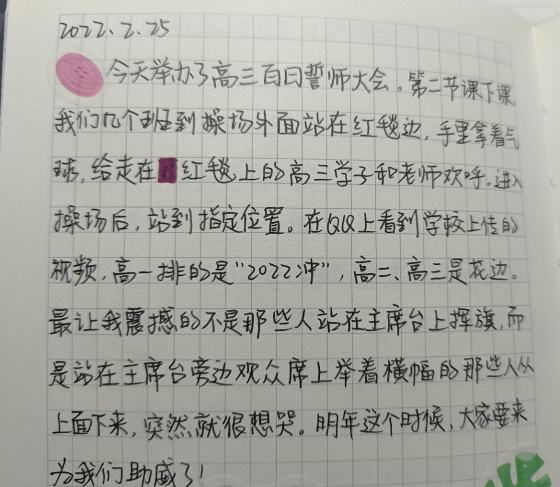 2022.2.25
今天举办了高三百日誓师大会。第二节课下课,
我们几个班到操场外面站在红毯边,手里拿着气
球,给走在红毯上的高三学子和老师欢呼。进入
操场后,站到指定位置。在QQ上看到学校上传的
视频,高一排的是“2022冲”,高二、高三是花边。
最让我震撼的不是那些人站在主席台上挥旗,而
是站在主席台旁边观众席上举着横幅的那些人从
上面下来,突然就很想哭。明年这个时候,大家要来
为我们助威了!